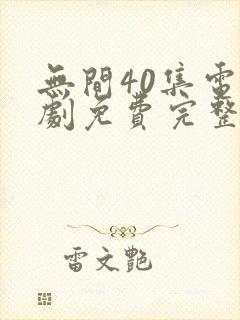 無間40集電
劇免費完整
雷文艷